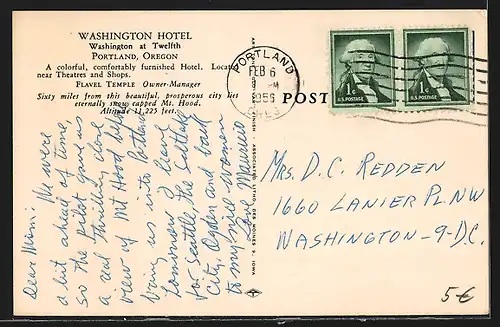 WASHINGTON HOTEL
Washington at Twelfth
PORTLAND, OREGON
A colorful, comfortably furnished Hotel. Located
near Theatres and Shops.
FLAVEL TEMPLE Owner-Manager
Sixty miles from this beautiful, prosperous city lies
eternally snow capped Mt. Hood.
Altitude 11,225 feet.
Dear Mom: We were
a bit ahead of time,
so the pilot gave us
a real thrilling close
view of Mt Hood before
bring us into Portland.
Tomorrow I leave
for Seattle the Salt Lake
City, Ogden and back
to my nice women
Love Maurice
FINISH - ASSOCIATED LITHO, DES MOINES 9, IOWA
PORTLAND
FEB 6
PM
1956
OREG
POST
1¢
U.S. POSTAGE
1¢
U.S. POSTAGE
MRS. D.C. REDDEN
1660 LANIER PL. NW
WASHINGTON-9-D.C.
5€